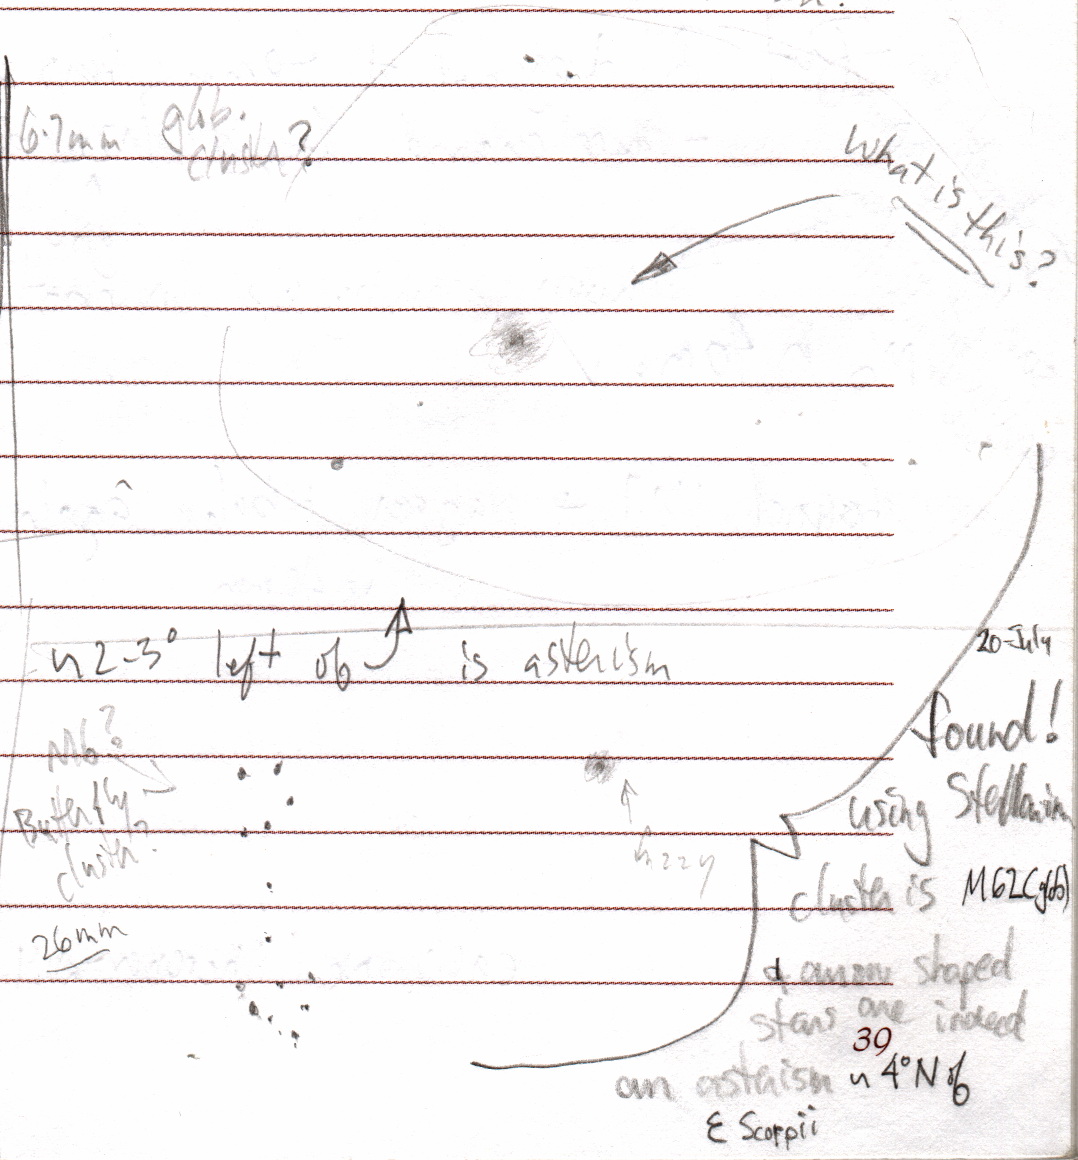 6.7mm glob.
cluster?
What is this?
~ 2-3° left of is asterism
M6?
Butterfly
cluster?
fuzzy
26mm
20-July
found!
using Stellarium
cluster is M62(glob)
& arrow shaped
stars are indeed
39
an asterism ~ 4°N of
ε Scorpii